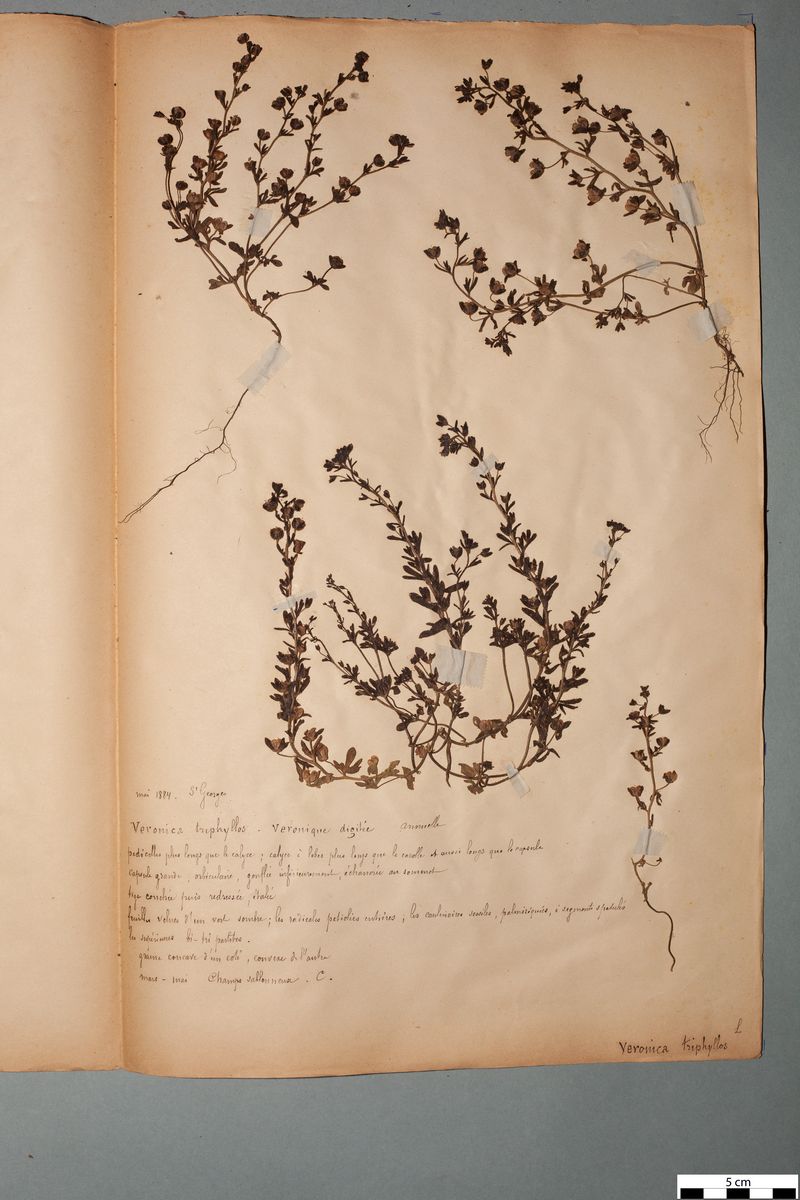 mai 1884. St Georges
Veronica triphyllos - Véronique digitée annuelle
pedicelles plus longs que le calyce ; calyce à lobes plus longs que la corolle et aussi longs que la capsule
capsule grande, orbiculaire, gonflée inférieurement, échancrée au sommet
tige couchée puis redressée, étalée
feuilles velues d'un vert sombre ; les radicales petiolées entières, les caulinaires sessiles, palmatiséquées, à segments spatulés
les supérieures bi-tri partites.
graine concave d'un coté, convexe de l'autre
mars - mai Champs sablonneux . C.
L
Veronica triphyllos
5 cm